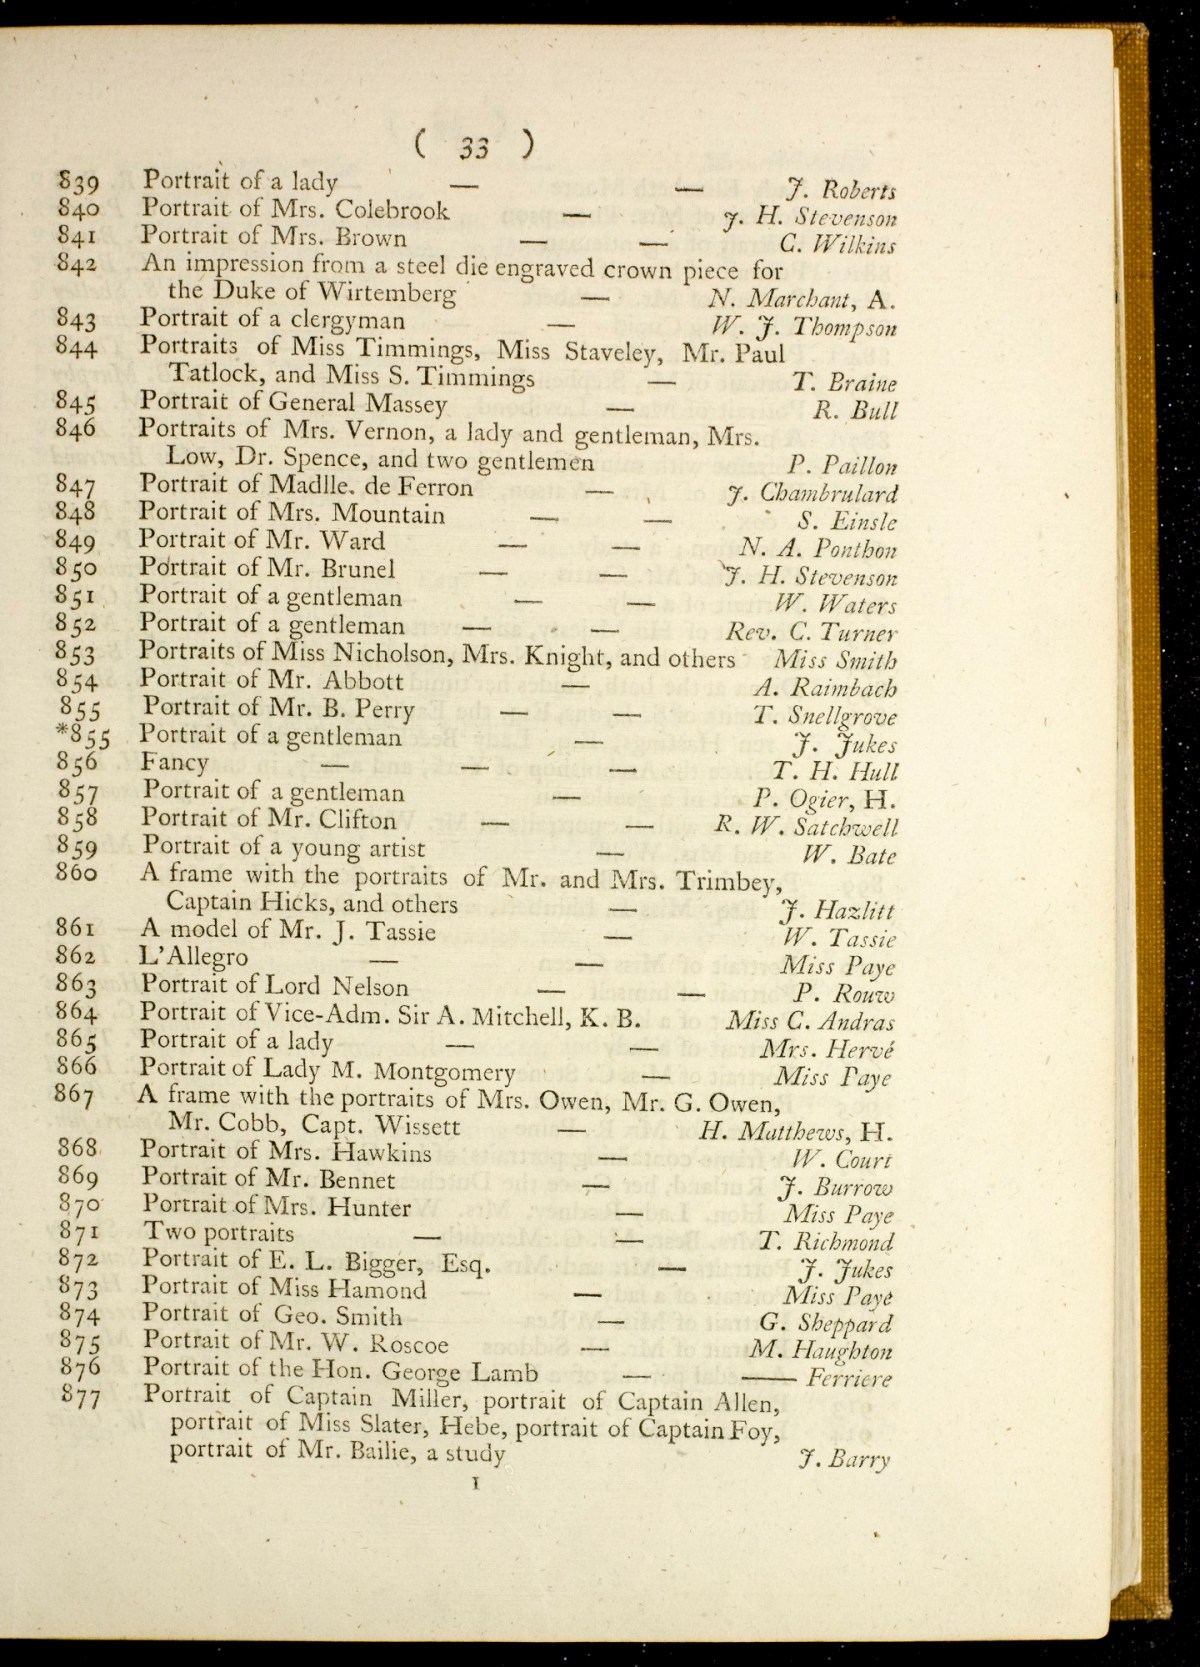 ( 33 )
839 Portrait of a lady — — J. Roberts
840 Portrait of Mrs. Colebrook — J. H. Stevenson
841 Portrait of Mrs. Brown — — C. Wilkins
842 An impression from a steel die engraved crown piece for
the Duke of Wirtemberg — N. Marchant, A.
843 Portrait of a clergyman — W. J. Thompson
844 Portraits of Miss Timmings, Miss Staveley, Mr. Paul
Tatlock, and Miss S. Timmings — T. Braine
845 Portrait of General Massey — R. Bull
846 Portraits of Mrs. Vernon, a lady and gentleman, Mrs.
Low, Dr. Spence, and two gentlemen P. Paillon
847 Portrait of Madlle. de Ferron — J. Chambrulard
848 Portrait of Mrs. Mountain — — S. Einsle
849 Portrait of Mr. Ward — — N. A. Ponthon
850 Portrait of Mr. Brunel — — J. H. Stevenson
851 Portrait of a gentleman — — W. Waters
852 Portrait of a gentleman — — Rev. C. Turner
853 Portraits of Miss Nicholson, Mrs. Knight, and others Miss Smith
854 Portrait of Mr. Abbott — A. Raimbach
855 Portrait of Mr. B. Perry — — T. Snellgrove
*855 Portrait of a gentleman — J. Jukes
856 Fancy — — — T. H. Hull
857 Portrait of a gentleman — P. Ogier, H.
858 Portrait of Mr. Clifton — — R. W. Satchwell
859 Portrait of a young artist — W. Bate
860 A frame with the portraits of Mr. and Mrs. Trimbey,
Captain Hicks, and others — J. Hazlitt
861 A model of Mr. J. Tassie — W. Tassie
862 L'Allegro — — Miss Paye
863 Portrait of Lord Nelson — — P. Rouw
864 Portrait of Vice-Adm. Sir A. Mitchell, K. B. Miss C. Andras
865 Portrait of a lady — — Mrs. Hervé
866 Portrait of Lady M. Montgomery — Miss Paye
867 A frame with the portraits of Mrs. Owen, Mr. G. Owen,
Mr. Cobb, Capt. Wissett — H. Matthews, H.
868 Portrait of Mrs. Hawkins — W. Court
869 Portrait of Mr. Bennet — J. Burrow
870 Portrait of Mrs. Hunter — Miss Paye
871 Two portraits — — T. Richmond
872 Portrait of E. L. Bigger, Esq. — J. Jukes
873 Portrait of Miss Hamond — Miss Paye
874 Portrait of Geo. Smith — G. Sheppard
875 Portrait of Mr. W. Roscoe — M. Haughton
876 Portrait of the Hon. George Lamb — —— Ferriere
877 Portrait of Captain Miller, portrait of Captain Allen,
portrait of Miss Slater, Hebe, portrait of Captain Foy,
portrait of Mr. Bailie, a study J. Barry
I